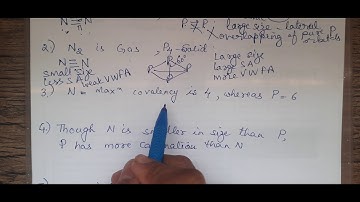 N ≡ N
P ≠ P
large size - lateral
overlapping of pure p
orbitals
2) N₂ is Gas, P₄ - solid
small size
less SA, weak VWFA
60°
Large size
large SA
more VWFA
3) N - maxᵐ covalency is 4, whereas P = 6
4) Though N is smaller in size than P,
P has more catenation than N